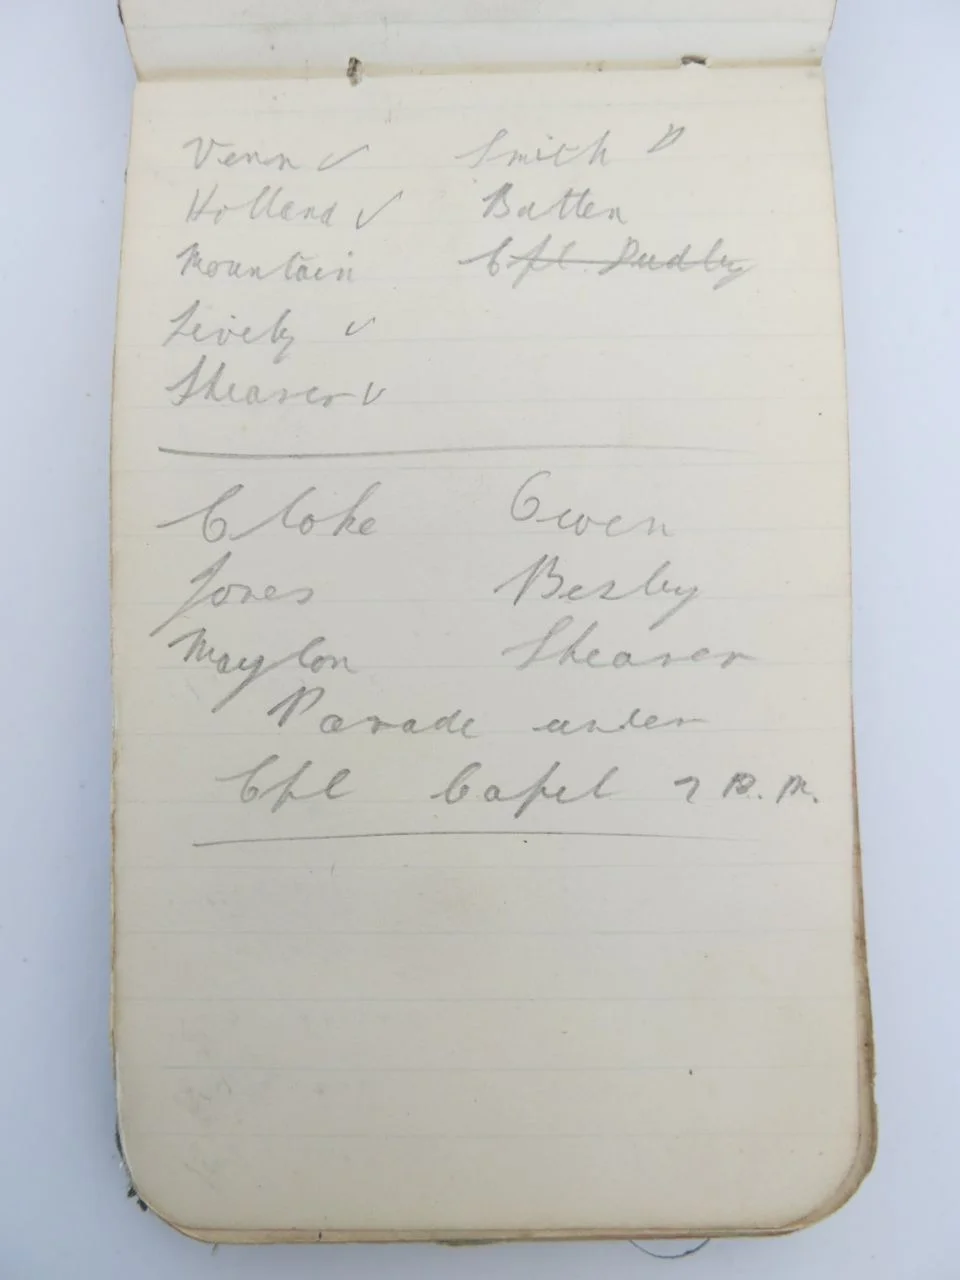 Venn ✓ Smith D
Holland ✓ Batten
Mountain Cpl. Dudley
Lively ✓
Shearer ✓
Cloke Owen
Jones Besby
Maylon Shearer
Parade under
Cpl Capel 7 P.M.